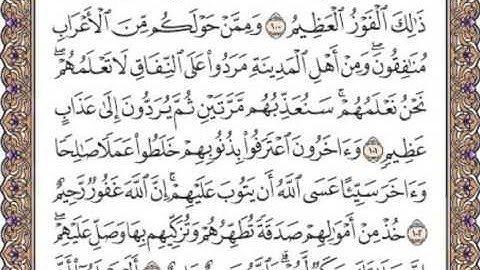 ذَٰلِكَ ٱلْفَوْزُ ٱلْعَظِيمُ ١٠٠ وَمِمَّنْ حَوْلَكُم مِّنَ ٱلْأَعْرَابِ
مُنَـٰفِقُونَۖ وَمِنْ أَهْلِ ٱلْمَدِينَةِ مَرَدُوا۟ عَلَى ٱلنِّفَاقِ لَا تَعْلَمُهُمْۖ
نَحْنُ نَعْلَمُهُمْۚ سَنُعَذِّبُهُم مَّرَّتَيْنِ ثُمَّ يُرَدُّونَ إِلَىٰ عَذَابٍ
عَظِيمٍ ١٠١ وَءَاخَرُونَ ٱعْتَرَفُوا۟ بِذُنُوبِهِمْ خَلَطُوا۟ عَمَلًا صَـٰلِحًا
وَءَاخَرَ سَيِّئًا عَسَى ٱللَّهُ أَن يَتُوبَ عَلَيْهِمْۚ إِنَّ ٱللَّهَ غَفُورٌ رَّحِيمٌ
١٠٢ خُذْ مِنْ أَمْوَٰلِهِمْ صَدَقَةً تُطَهِّرُهُمْ وَتُزَكِّيهِم بِهَا وَصَلِّ عَلَيْهِمْۖ